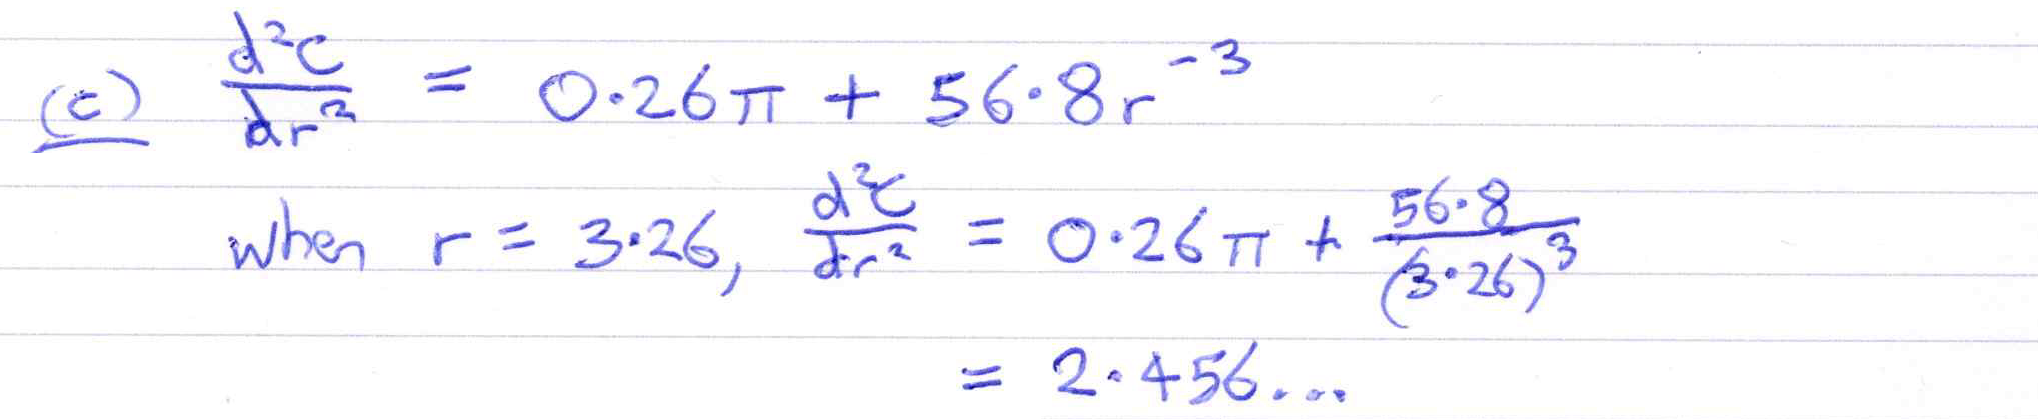 (c) d²C/dr² = 0.26π + 56.8r⁻³
when r = 3.26, d²C/dr² = 0.26π + 56.8/(3.26)³
= 2.456...